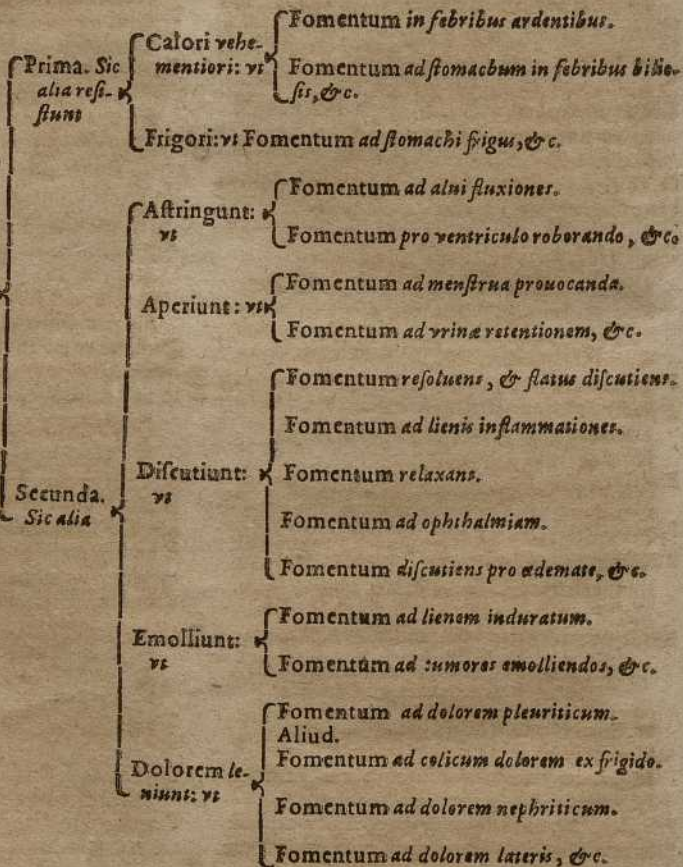 Prima. Sic
alia resi-
stunt
Calori vehe-
mentiori: vt
Fomentum in febribus ardentibus.
Fomentum ad stomachum in febribus bilio-
sis, &c.
Frigori: vt Fomentum ad stomachi frigus, &c.
Secunda.
Sic alia
Astringunt:
vt
Fomentum ad alui fluxiones.
Fomentum pro ventriculo roborando, &c.
Aperiunt: vt
Fomentum ad menstrua prouocanda.
Fomentum ad vrinæ retentionem, &c.
Discutiunt:
vt
Fomentum resoluens, & flatus discutiens.
Fomentum ad lienis inflammationes.
Fomentum relaxans.
Fomentum ad ophthalmiam.
Fomentum discutiens pro œdemate, &c.
Emolliunt:
vt
Fomentum ad lienem induratum.
Fomentum ad tumores emolliendos, &c.
Dolorem le-
niunt: vt
Fomentum ad dolorem pleuriticum.
Aliud.
Fomentum ad colicum dolorem ex frigido.
Fomentum ad dolorem nephriticum.
Fomentum ad dolorem lateris, &c.